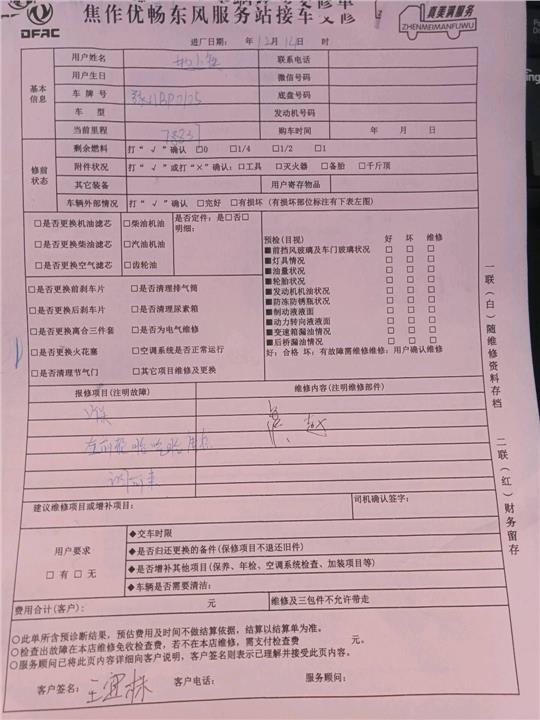 DFAC
焦作优畅东风服务站接车
真美真服务
ZHENMEIZHENFUWU
进厂日期: 年 12 月 16 日 时
基本信息
用户姓名 联系电话
用户生日 微信号码
车牌号 底盘号码
车型 发动机号码
当前里程 购车时间 年 月 日
修前状态
剩余燃料 打“√”确认 □0 □1/4 □1/2 □1
附件状况 打“√”或打“×”确认:□工具 □灭火器 □备胎 □千斤顶
其它装备 用户寄存物品
车辆外部情况 打“√”确认 □完好 □有损坏(有损坏部位标注有下表左图)
□是否更换机油滤芯 □柴油机油 是否定件:是□否□
明细:
□是否更换柴油滤芯 □汽油机油
□是否更换空气滤芯 □齿轮油
□是否更换前刹车片 □是否清理排气筒
□是否更换后刹车片 □是否清理尿素箱
□是否更换离合三件套 □是否为电气维修
□是否更换火花塞 □空调系统是否正常运行
□是否清理节气门 □其它项目维修及更换
预检(目视) 好 坏 维修
■前挡风玻璃及车门玻璃状况 □ □ □
■灯具情况 □ □ □
■油量状况 □ □ □
■轮胎状况 □ □ □
■发动机机油状况 □ □ □
■防冻防锈瓶状况 □ □ □
■制动液液面 □ □ □
■动力转向液液面 □ □ □
■变速箱漏油情况 □ □ □
■后桥漏油情况 □ □ □
好:合格 坏:有故障需维修维修:用户确认维修
报修项目(注明故障) 维修内容(注明维修部件)
建议维修项目或增补项目: 司机确认签字:
用户要求
□有 □无
◆交车时限
◆是否归还更换的备件(保修项目不退还旧件)
◆是否增补其他项目(保养、年检、空调系统检查、加装项目等)
◆车辆是否需要清洁:
费用合计(客户): 元 维修及三包件不允许带走
○此单所含预诊断结果,预估费用及时间不做结算依据,结算以结算单为准。
○检查出故障在本店维修免收检查费,若不在本店维修,需支付检查费 元。
○服务顾问已将此页内容详细向客户说明,客户签名则表示已理解并接受此页内容。
客户签名: 王宜林 客户电话: 服务顾问:
一联(白)随维修资料存档
二联(红)财务留存